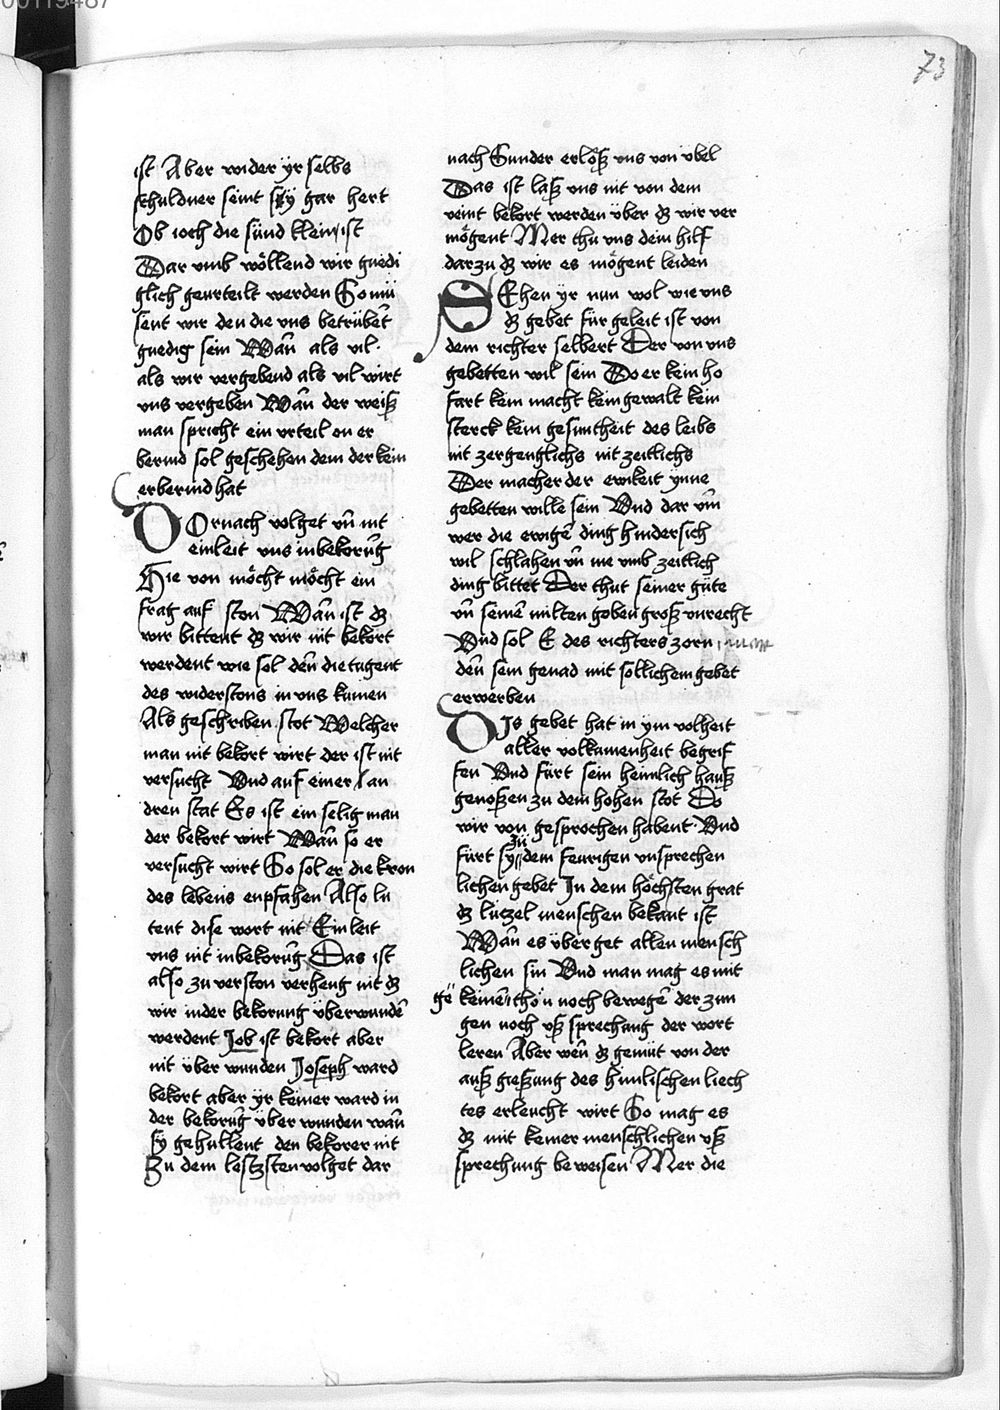 00119487
73
ist Aber wider yr selbs
schuldner seint sy gar hert
Ob ioch die sünd klein ist
Dar vmb wöllend wir gnedi
glich geurteilt werden So mü
sent wir den die vns betrübēt
gnedig sein Wañ als vil
als wir vergebend als vil wirt
vns vergeben Wañ der weiß
man spricht ein vrteil on er
bermd sol geschehen dem der kein
erbermd hat
DOrnach volget vñ nit
einleit vns in bekorūg
Hie von möcht möcht ein
frag auf ston Wañ ist dz
wir bittent dz wir nit bekort
werdent wie sol deñ die tugent
des widerstons in vns kumen
Als geschriben stot Welcher
man nit bekort wirt der ist nit
versucht Vnd auf einer an
dren stat Es ist ein selig man
der bekort wirt Wañ so er
versucht wirt So sol er die kron
des lebens enpfahen Also lu
tent dise wort nit Einleit
vns nit in bekorūg Das ist
also zu verston verheng nit dz
wir in der bekorung überwundē
werdent Job ist bekort aber
nit über wunden Joseph ward
bekort aber yr keiner ward in
der bekorūg über wunden wañ
sy gehullent den bekorer nit
Zu dem lestzsten volget dar
nach Sunder erlöß vns von übel
Das ist laß vns nit von dem
veint bekort werden über dz wir ver
mögent Mer thu vns dein hilf
dar zu dz wir es mögent leiden
SEhen yr nun wol wie vns
dz gebet für geleit ist von
dem richter selbert Der von vns
gebetten wil sein Do er kein ho
fart kein macht kein gewalt kein
sterck kein gesuntheit des leibs
nit zergenglichs nit zeitlichs
Der macher der ewikeit ynne
gebetten wille sein Vnd dar vm̄
wer die ewigē ding hindersich
wil schlahen vñ nie vmb zeitlich
ding bittet Der thut seiner güte
vñ seinē milten goben groß vnrecht
Vnd sol E des richters zorn
deñ sein genad mit sollichem gebet
erwerben
DJs gebet hat in ym volheit
aller volkamenheit begrif
fen Vnd fürt sein heimlich hauß
genoßen zu dem hohen stot Do
wir von gesprochen habent Vnd
fürt sy zü dem feurigen vnsprechen
lichen gebet Jn dem höchsten grat
dz lüczel menschen bekant ist
Wañ es überget allen mensch
lichen sin Vnd man mag es mit
keinem gethön noch bewegē der zun
gen noch vß sprechung der wort
leren Aber weñ dz gemüt von der
auß gießung des himlischen liech
tes erleucht wirt So mag es
dz mit keiner menschlichen vß
sprechung beweisen Mer die